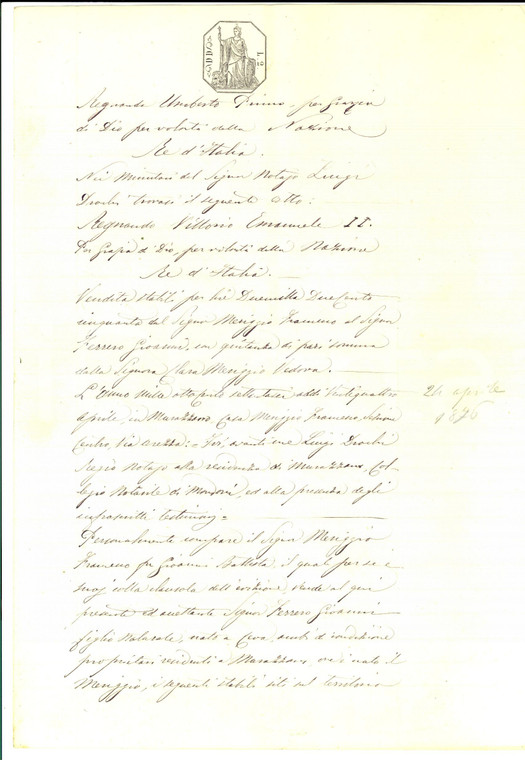 Regnando Umberto Primo per Grazia
di Dio per volontà della Nazione
Re d'Italia.
Nei Minutari del Signor Notajo Luigi
trovasi il seguente atto:
Regnando Vittorio Emanuele II.
Per Grazia d'Dio, per volontà della Nazione
Re d'Italia.
Vendita stabili per lire Duemilla Duecento
cinquanta dal Signor Meriggio Francesco al Signor
Ferrero Giovanni, con quitanza di pari somma
della Signora Clara Meriggio Vedova.
L'Anno mille ottocento settanta addì Ventiquattro
24 aprile
Aprile, in Murazzano, Casa Meriggio Francesco, Sezione
1876
Centro, Via Arezzo; avanti me Luigi
Regio Notajo alla residenza di Murazzano, Col-
legio Notarile di Mondovì, ed alla presenza degli
infrascritti testimonj=
Personalmente compare il Signor Meriggio
Francesco fu Giovanni Battista, il quale per se e
suoj colla clausola dell'evizione, vende al qui
presente ed accettante Signor Ferrero Giovanni
figlio naturale, nato a Ceva, ambi di condizione
proprietari residenti a Murazzano, ove è nato il
Meriggio, i seguenti stabili siti sul territorio